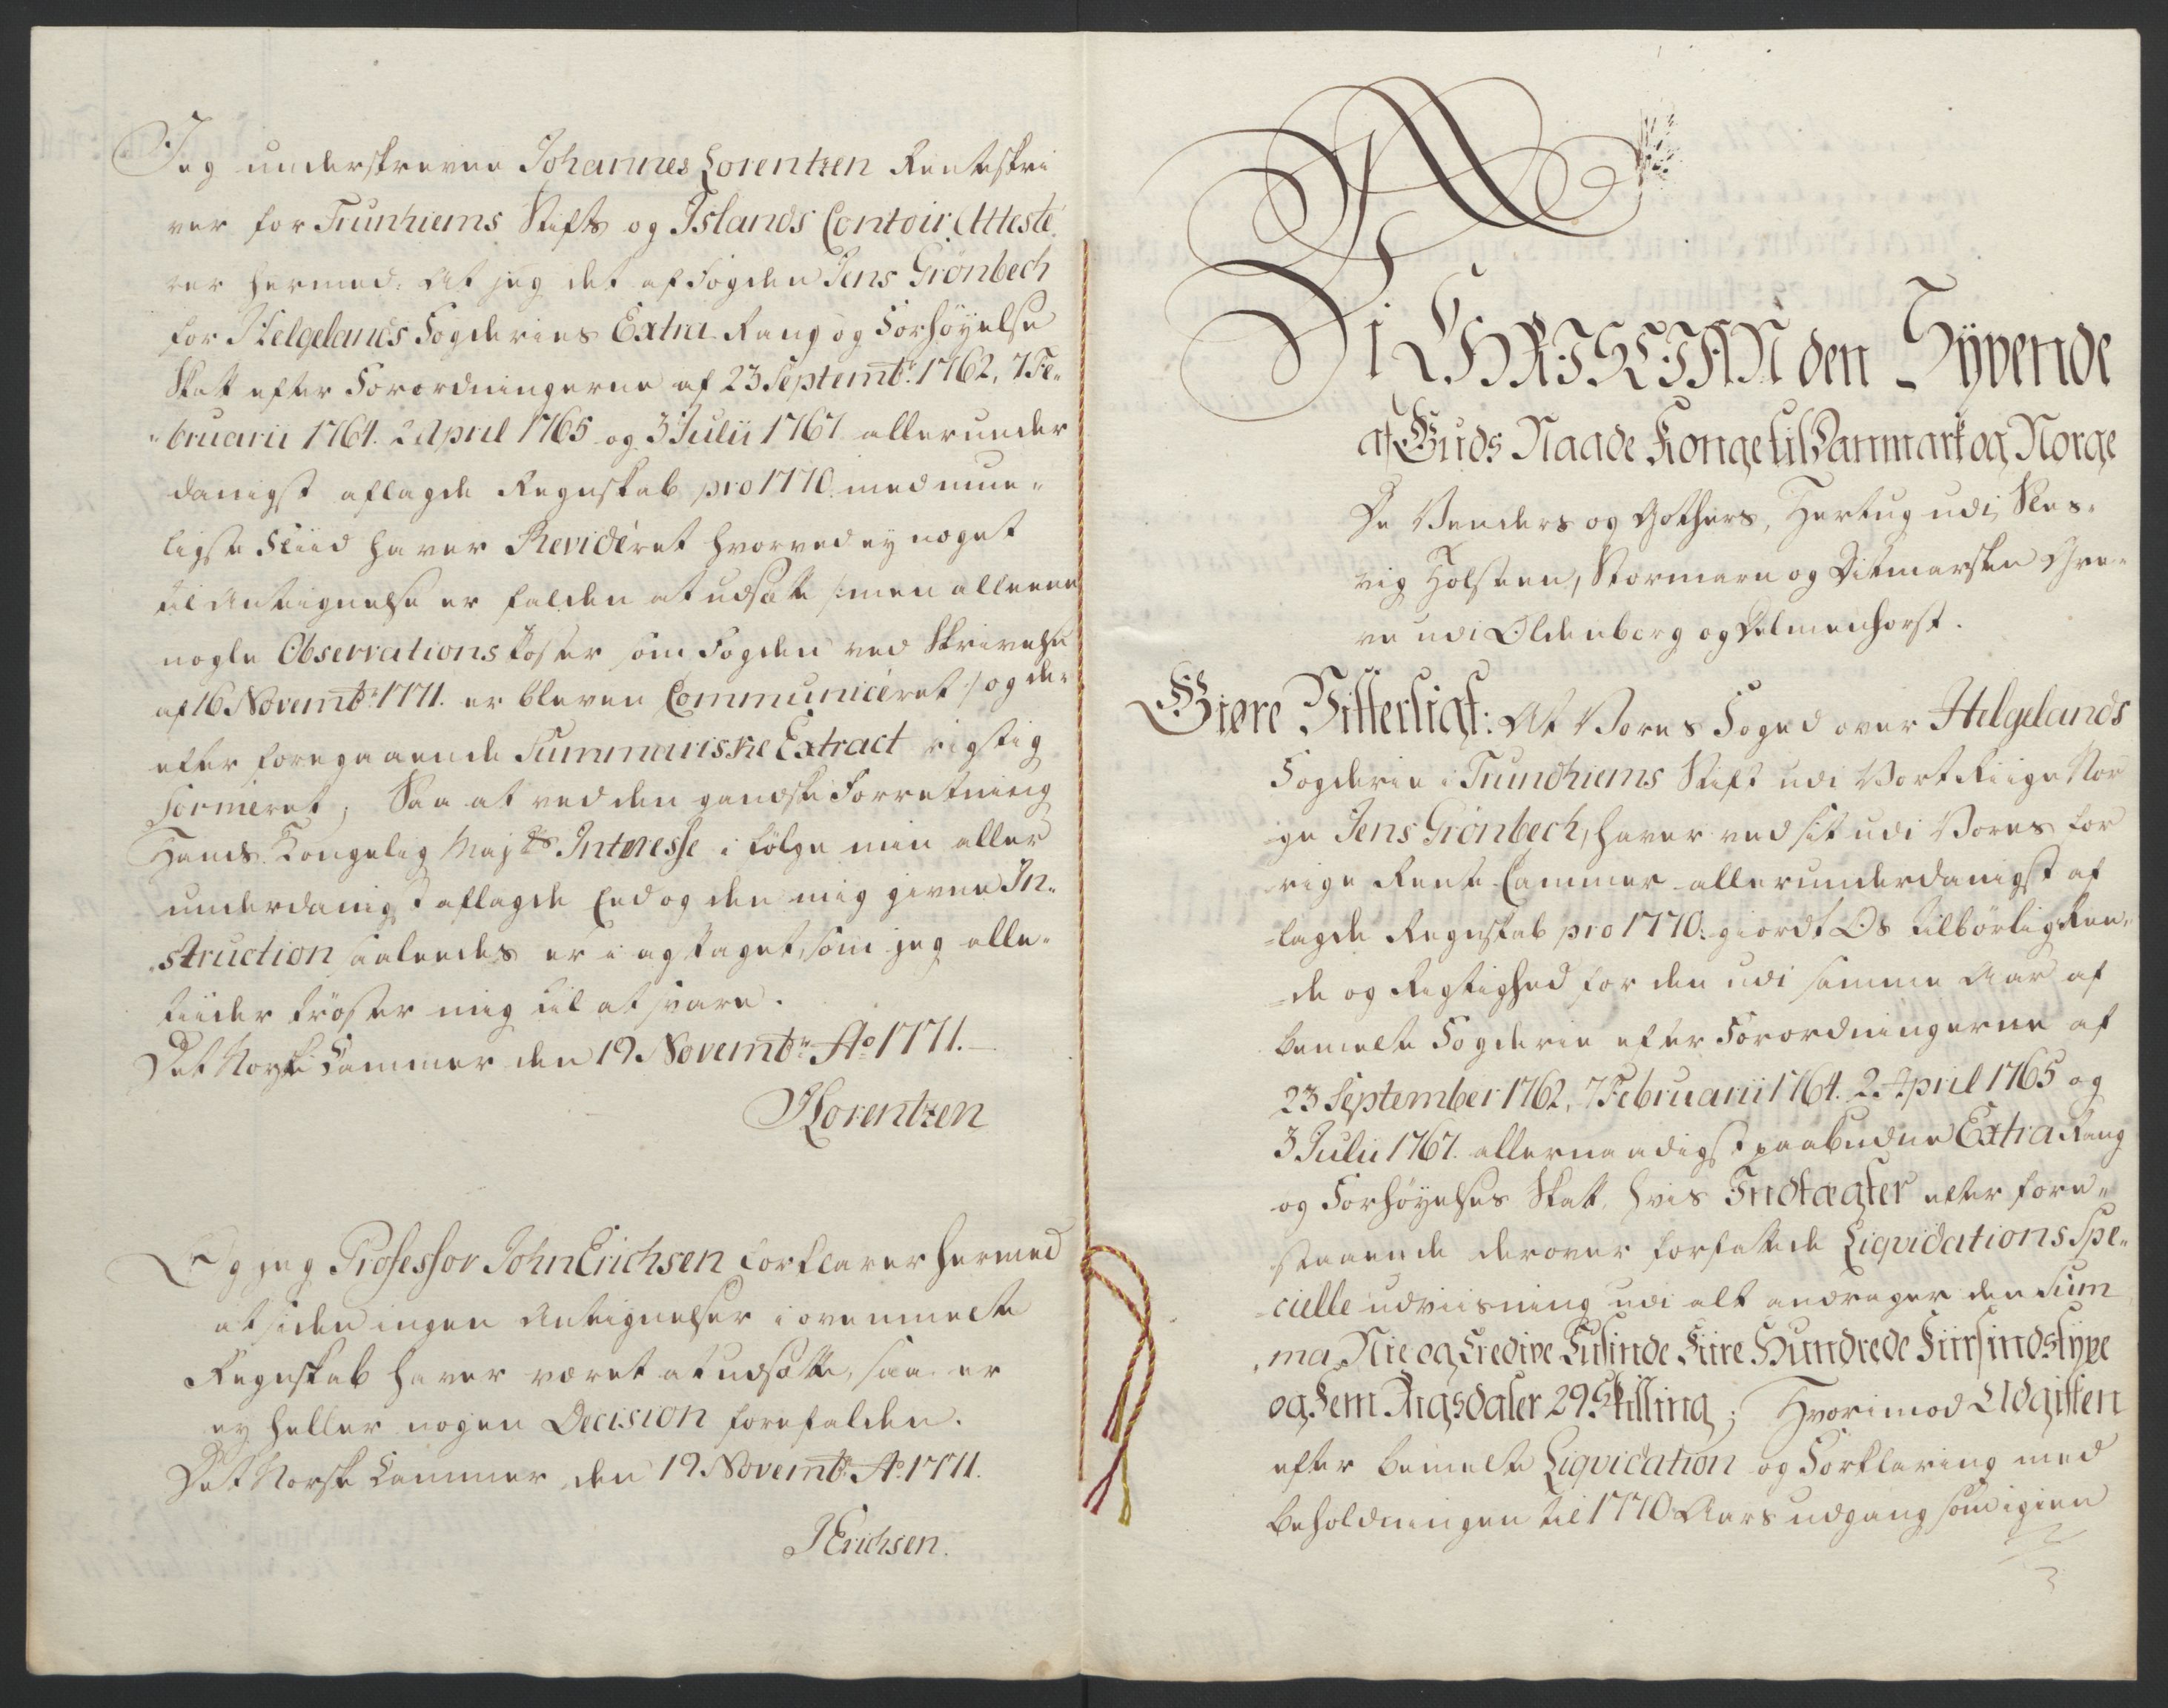 Jeg underskrevne Johannes Lorentzen Renteskri
ver for Trunhiems Stifts og Islands Contoir Atteste
rer hermed: At jeg det af Fogden Jens Grönbech
for Helgelands Fogderies Extra Rang og Forhöyelse
Skat efter Forordningerne af 23 Septembr: 1762, 7 Fe-
bruarii 1764. 2 April 1765 og 3 Julii 1767 allerunder
danigst aflagde Regnskab pro 1770. med mue-
ligste Fliid haver Revideret hvorved ey noget
til Antegnelse er falden at udsætte /: men alleene
nogle Observations Poster som Fogden ved Skrivelse
af 16 Novembr: 1771. er bleven Communiceret :/ og der
efter foregaaende Summariske Extract rigtig
Formeret; Saa at ved den gandske Forretning
Hands Kongelig Majts Interesse i fölge min aller
underdanigst aflagde Eed og den mig givne In-
struction saaledes er i agttaget, som jeg alle-
tiider tröster mig til at svare.
Det Norske Kammer den 19 Novembr: Ao 1771.
JLorentzen
Og jeg Professor John Erichsen forklarer hermed
at siden ingen Antegnelser i ovenmelte
Regnskab haver været at udsætte, saa er
ey heller nogen Decision forefalden.
Det Norske Kammer, den 19 Novembr: Ao 1771.
JErichsen.
Vi CHRISTIAN den Syvende
af Guds Naade Konge til Danmark og Norge
De Venders og Gothers, Hertug udi Sles-
vig Holsteen, Stormarn og Ditmarsken Gre-
ve udi Oldenborg og Delmenhorst.
Giøre Vitterligt: At Vores Foged over Helgelands
Fogderie i Trundhiems Stift udi Vort Riige Nor
ge Jens Grönbech, haver ved sit udi Vores for
rige Rente Cammer allerunderdanigst af
lagde Regnskab pro 1770. giordt Os tilbörlig Ree-
de og Rigtighed for den udi samme Aar af
bemelte Fogderie efter Forordningerne af
23 September 1762, 7 Februarii 1764. 2. April 1765 og
3 Julii 1767. allernaadigst paabudne Extra Rang
og Forhöyelses Skat, hvis Indtægter efter fore-
staaende derover forfattede Liqvidations Spe-
cielle udviisning udi alt andrager den Sum
ma Nie og Tredive Tusinde Fiire Hundrede Fiirsindstyve
og Fem Rigsdaler 29 Skilling; Hvorimod Udgiften
efter bemelte Liqvidation og Forklaring med
Beholdningen til 1770 Aars udgang som igien